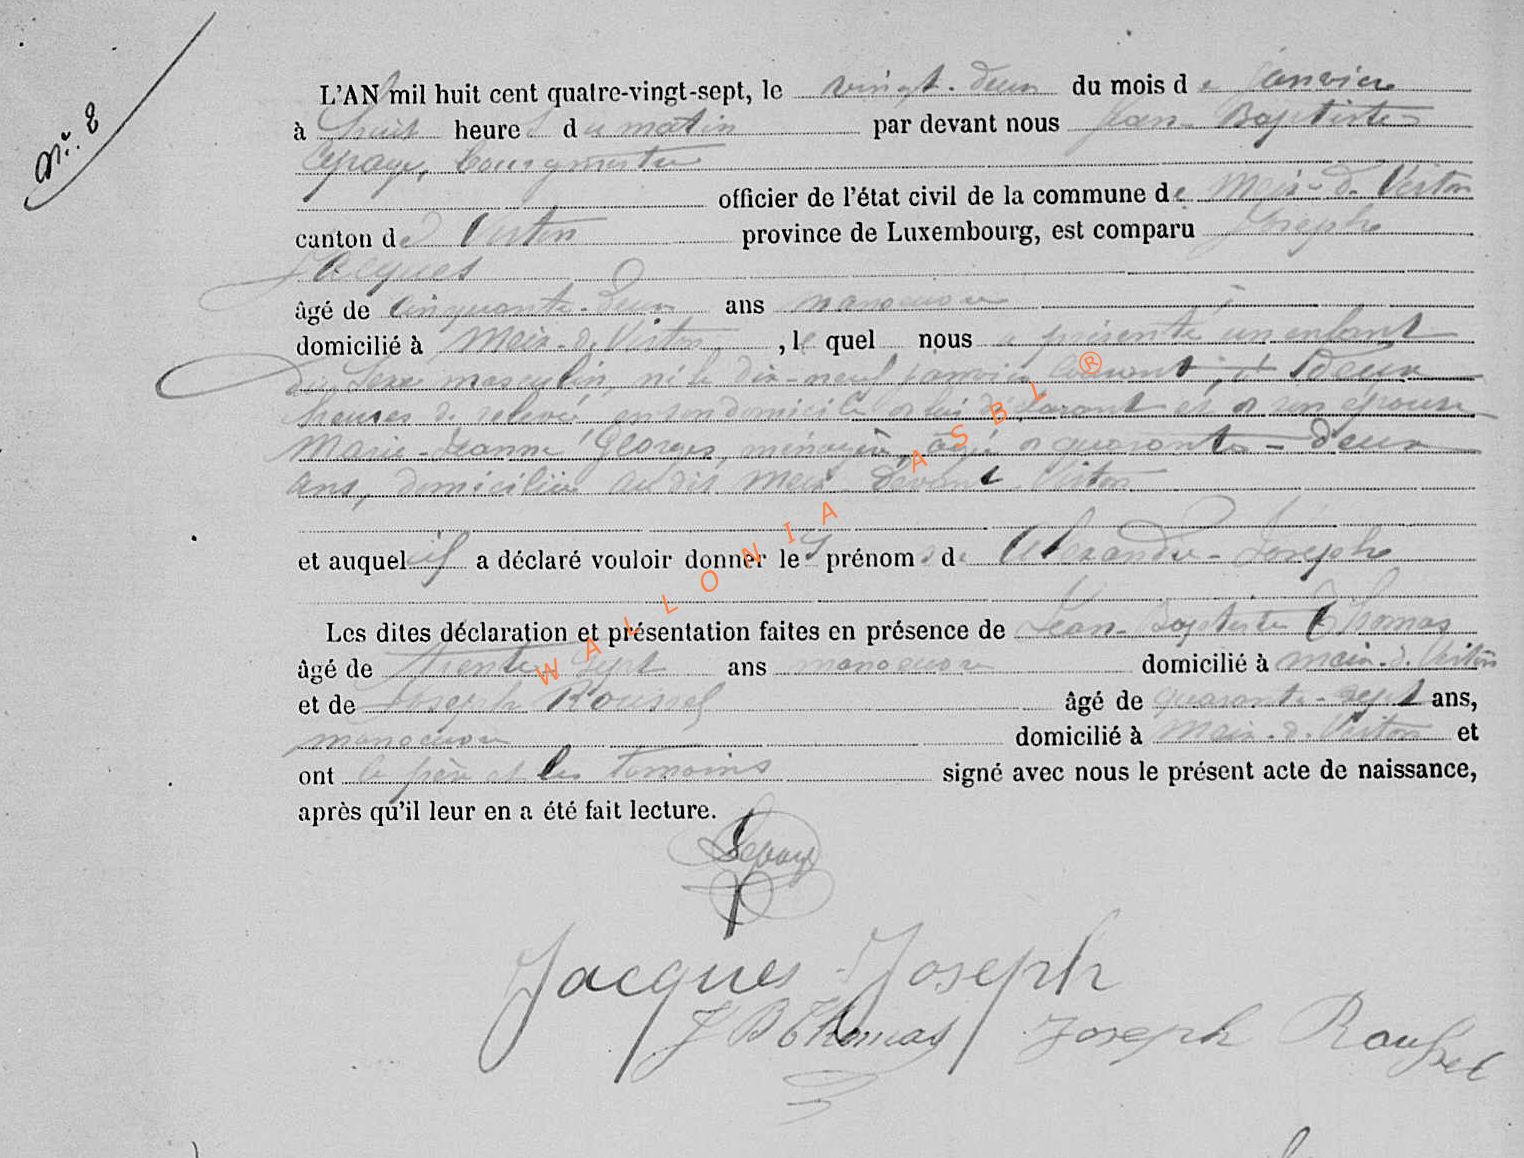 N°. 8
L'AN mil huit cent quatre-vingt-sept, le vingt-deux du mois de Janvier
à huit heures du matin par devant nous Jean-Baptiste
Lepage, bourgmestre
officier de l'état civil de la commune de Meix-d.-Virton
canton de Virton province de Luxembourg, est comparu Josephe
Jacques
âgé de cinquante-deux ans manoeuvre
domicilié à Meix-d.-Virton, le quel nous a présenté un enfant
du sexe masculin, né le dix-neuf janvier courant, à deux
heures de relevée, en son domicile de lui déclarant et de son épouse
Marie-Jeanne Georges, ménagère, âgée de quarante-deux
ans, domiciliée audit Meix-devant-Virton
et auquel il a déclaré vouloir donner les prénoms de Alexandre-Josephe
Les dites déclaration et présentation faites en présence de Jean-Baptiste Thomas
âgé de trente-sept ans manoeuvre domicilié à Meix-d.-Virton
et de Joseph Roussel âgé de quarante-sept ans,
manoeuvre domicilié à Meix-d.-Virton et
ont le père et les témoins signé avec nous le présent acte de naissance,
après qu'il leur en a été fait lecture.
Lepage
Jacques Joseph
J B Thomas Joseph Roussel
WALLONIA ASBL ®